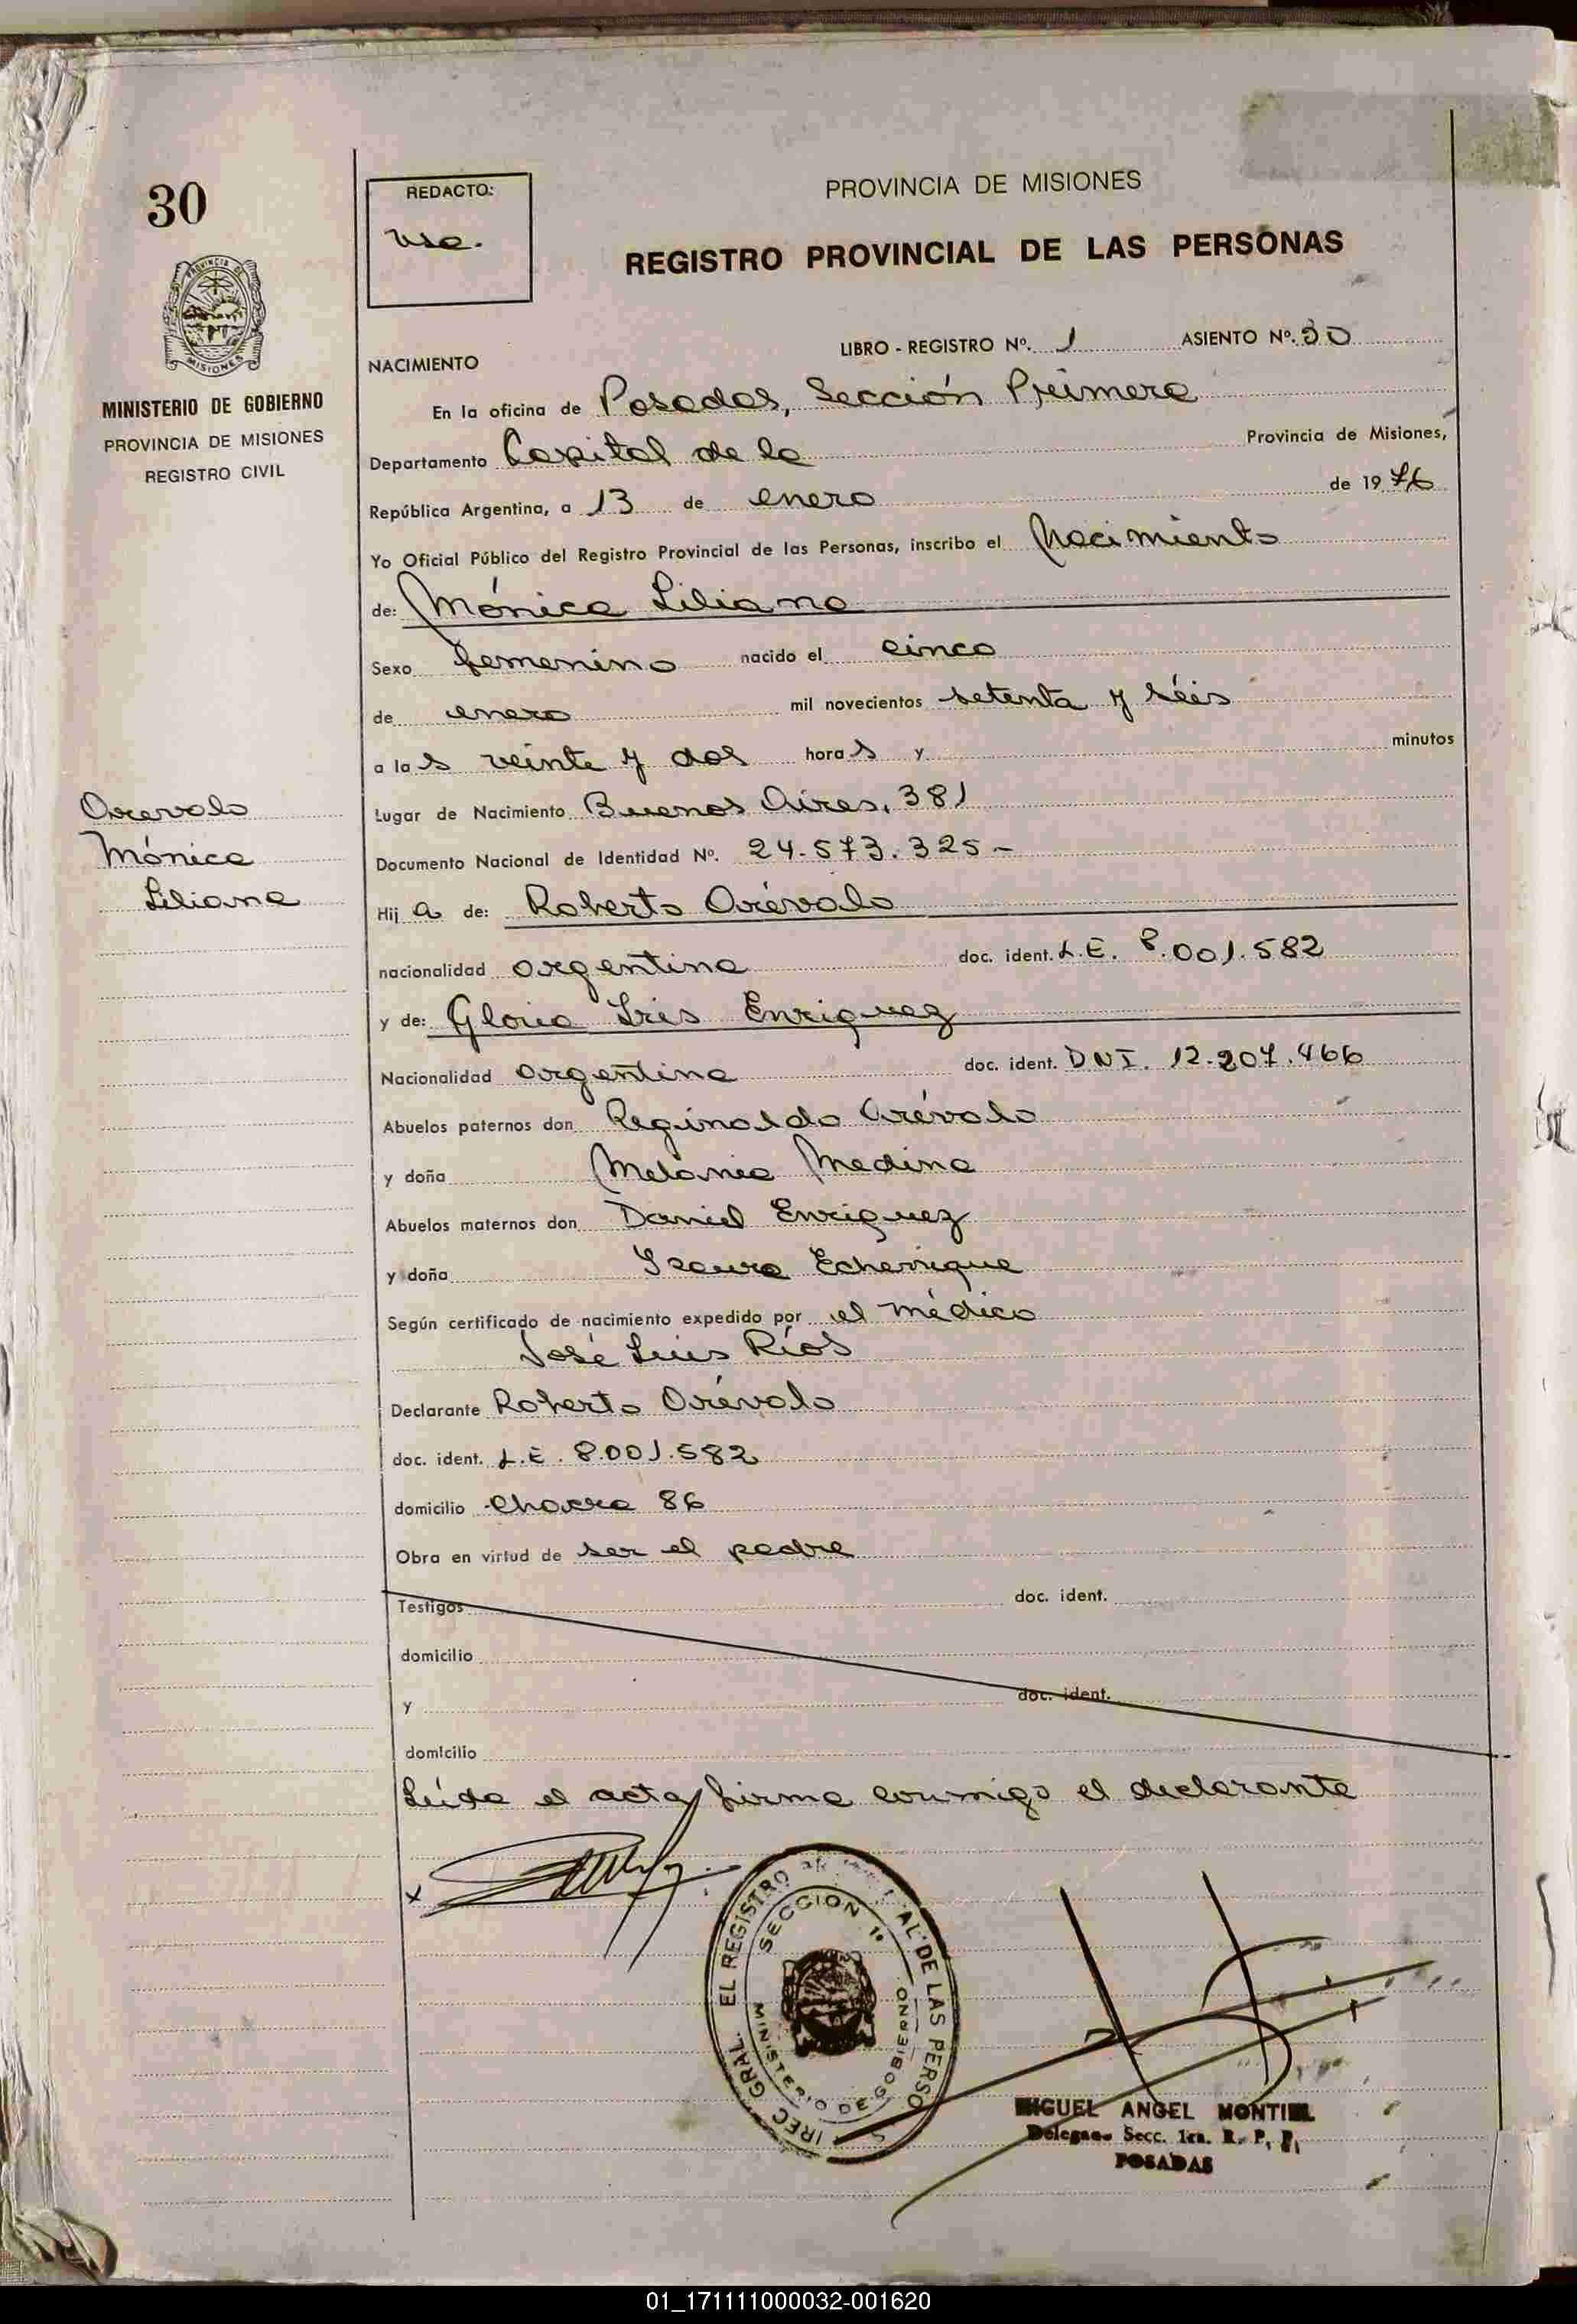 30
MINISTERIO DE GOBIERNO
PROVINCIA DE MISIONES
REGISTRO CIVIL
Arevalo
Mónica
Liliana
REDACTO:
PROVINCIA DE MISIONES
REGISTRO PROVINCIAL DE LAS PERSONAS
LIBRO - REGISTRO Nº. 1 ASIENTO Nº. 30
NACIMIENTO
En la oficina de Posadas, Sección Primera
Departamento Capital de la Provincia de Misiones,
República Argentina, a 13 de enero de 1976
Yo Oficial Público del Registro Provincial de las Personas, inscribo el Nacimiento
de: Mónica Liliana
Sexo femenino nacido el cinco
de enero mil novecientos setenta y séis
a las veinte y dos horas y minutos
Lugar de Nacimiento Buenos Aires, 381
Documento Nacional de Identidad Nº. 24.573.325-
Hija de: Roberto Arévalo
nacionalidad argentina doc. ident. L.E. 8.001.582
y de: Gloria Iris Enriquez
Nacionalidad argentina doc. ident. DNI. 12.207.466
Abuelos paternos don Reginaldo Arévalo
y doña Melania Medina
Abuelos maternos don Daniel Enriquez
y doña Isaura Echerrigue
Según certificado de nacimiento expedido por el médico
José Luis Ríos
Declarante Roberto Arévalo
doc. ident. L.E. 8.001.582
domicilio Chacra 86
Obra en virtud de ser el padre
Testigos doc. ident.
domicilio
y doc. ident.
domicilio
Leída el acta, firma conmigo el declarante
x
IREC. GRAL. EL REGISTRO AL DE LAS PERSO
SECCION 1ª
MINISTERIO DE GOBIERNO
MIGUEL ANGEL MONTIEL
Secc. 1ra. R. P. P.
POSADAS
01_171111000032-001620